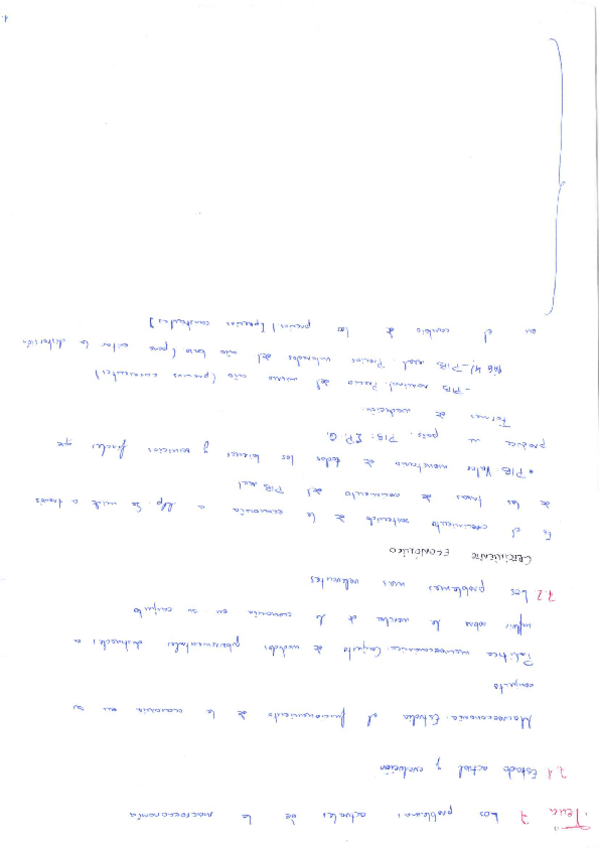 Tema 7 Los problemas actuales de la macroeconomía
7.1 Estado actual y evolución
Macroeconomía: Estudia el funcionamiento de la economía en su
conjunto
Política macroeconómica: Conjunto de medidas gubernamentales destinadas a
influir sobre la marcha de la economía en su conjunto
7.2 Los problemas más relevantes
CRECIMIENTO ECONÓMICO
Es el crecimiento sostenido de la economía a l/p. Se mide a través
de las tasas de crecimiento del PIB real
• PIB: Valor monetario de todos los bienes y servicios finales que
produce un país. PIB: Σ P. Q.
Formas de medición:
- PIB nominal. Precio del mismo año (precios corrientes)
(PAG 4) - PIB real. Precios valorados del año base (para evitar la distorsión
en el cambio de los precios) [precios constantes]
1.